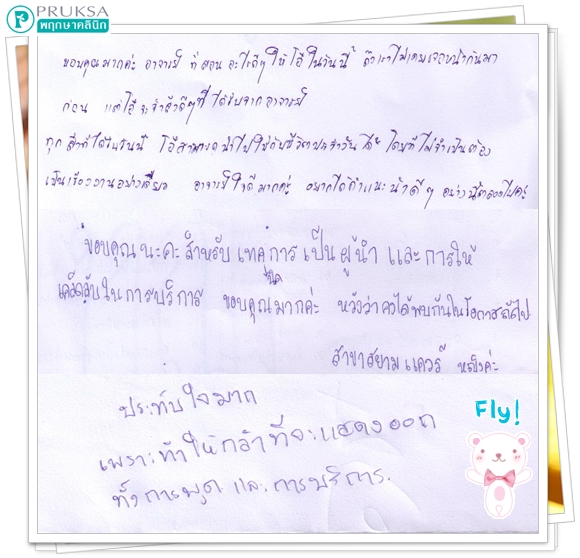 PRUKSA
พฤกษาคลินิก
ขอบคุณมากค่ะ อาจารย์ ที่สอนอะไรดีๆ ให้โอ๋ในวันนี้ ถึงเราไม่เคยเจอหน้ากันมา
ก่อน แต่โอ๋จะจำสิ่งดีๆที่ได้รับจากอาจารย์
ทุกสิ่งที่ได้ในวันนี้ โอ๋สามารถนำไปใช้กับชีวิตประจำวันได้ โดยที่ไม่จำเป็นต้อง
เป็นเรื่องงานอย่างเดียว อาจารย์ใจดีมากค่ะ อยากได้คำแนะนำดีๆ อย่างนี้ตลอดไปค่ะ
ขอบคุณนะคะสำหรับ การเป็นผู้นำ และการให้
เคล็ดลับในการบริการ ขอบคุณมากค่ะ หวังว่าคงได้พบกันในโอกาสถัดไป
สาขาสยามแควร์ หญิงค่ะ
ประทับใจมาก
เพราะทำให้กล้าที่จะแสดงออก
ทั้งการพูด และการบริการ.
Fly!